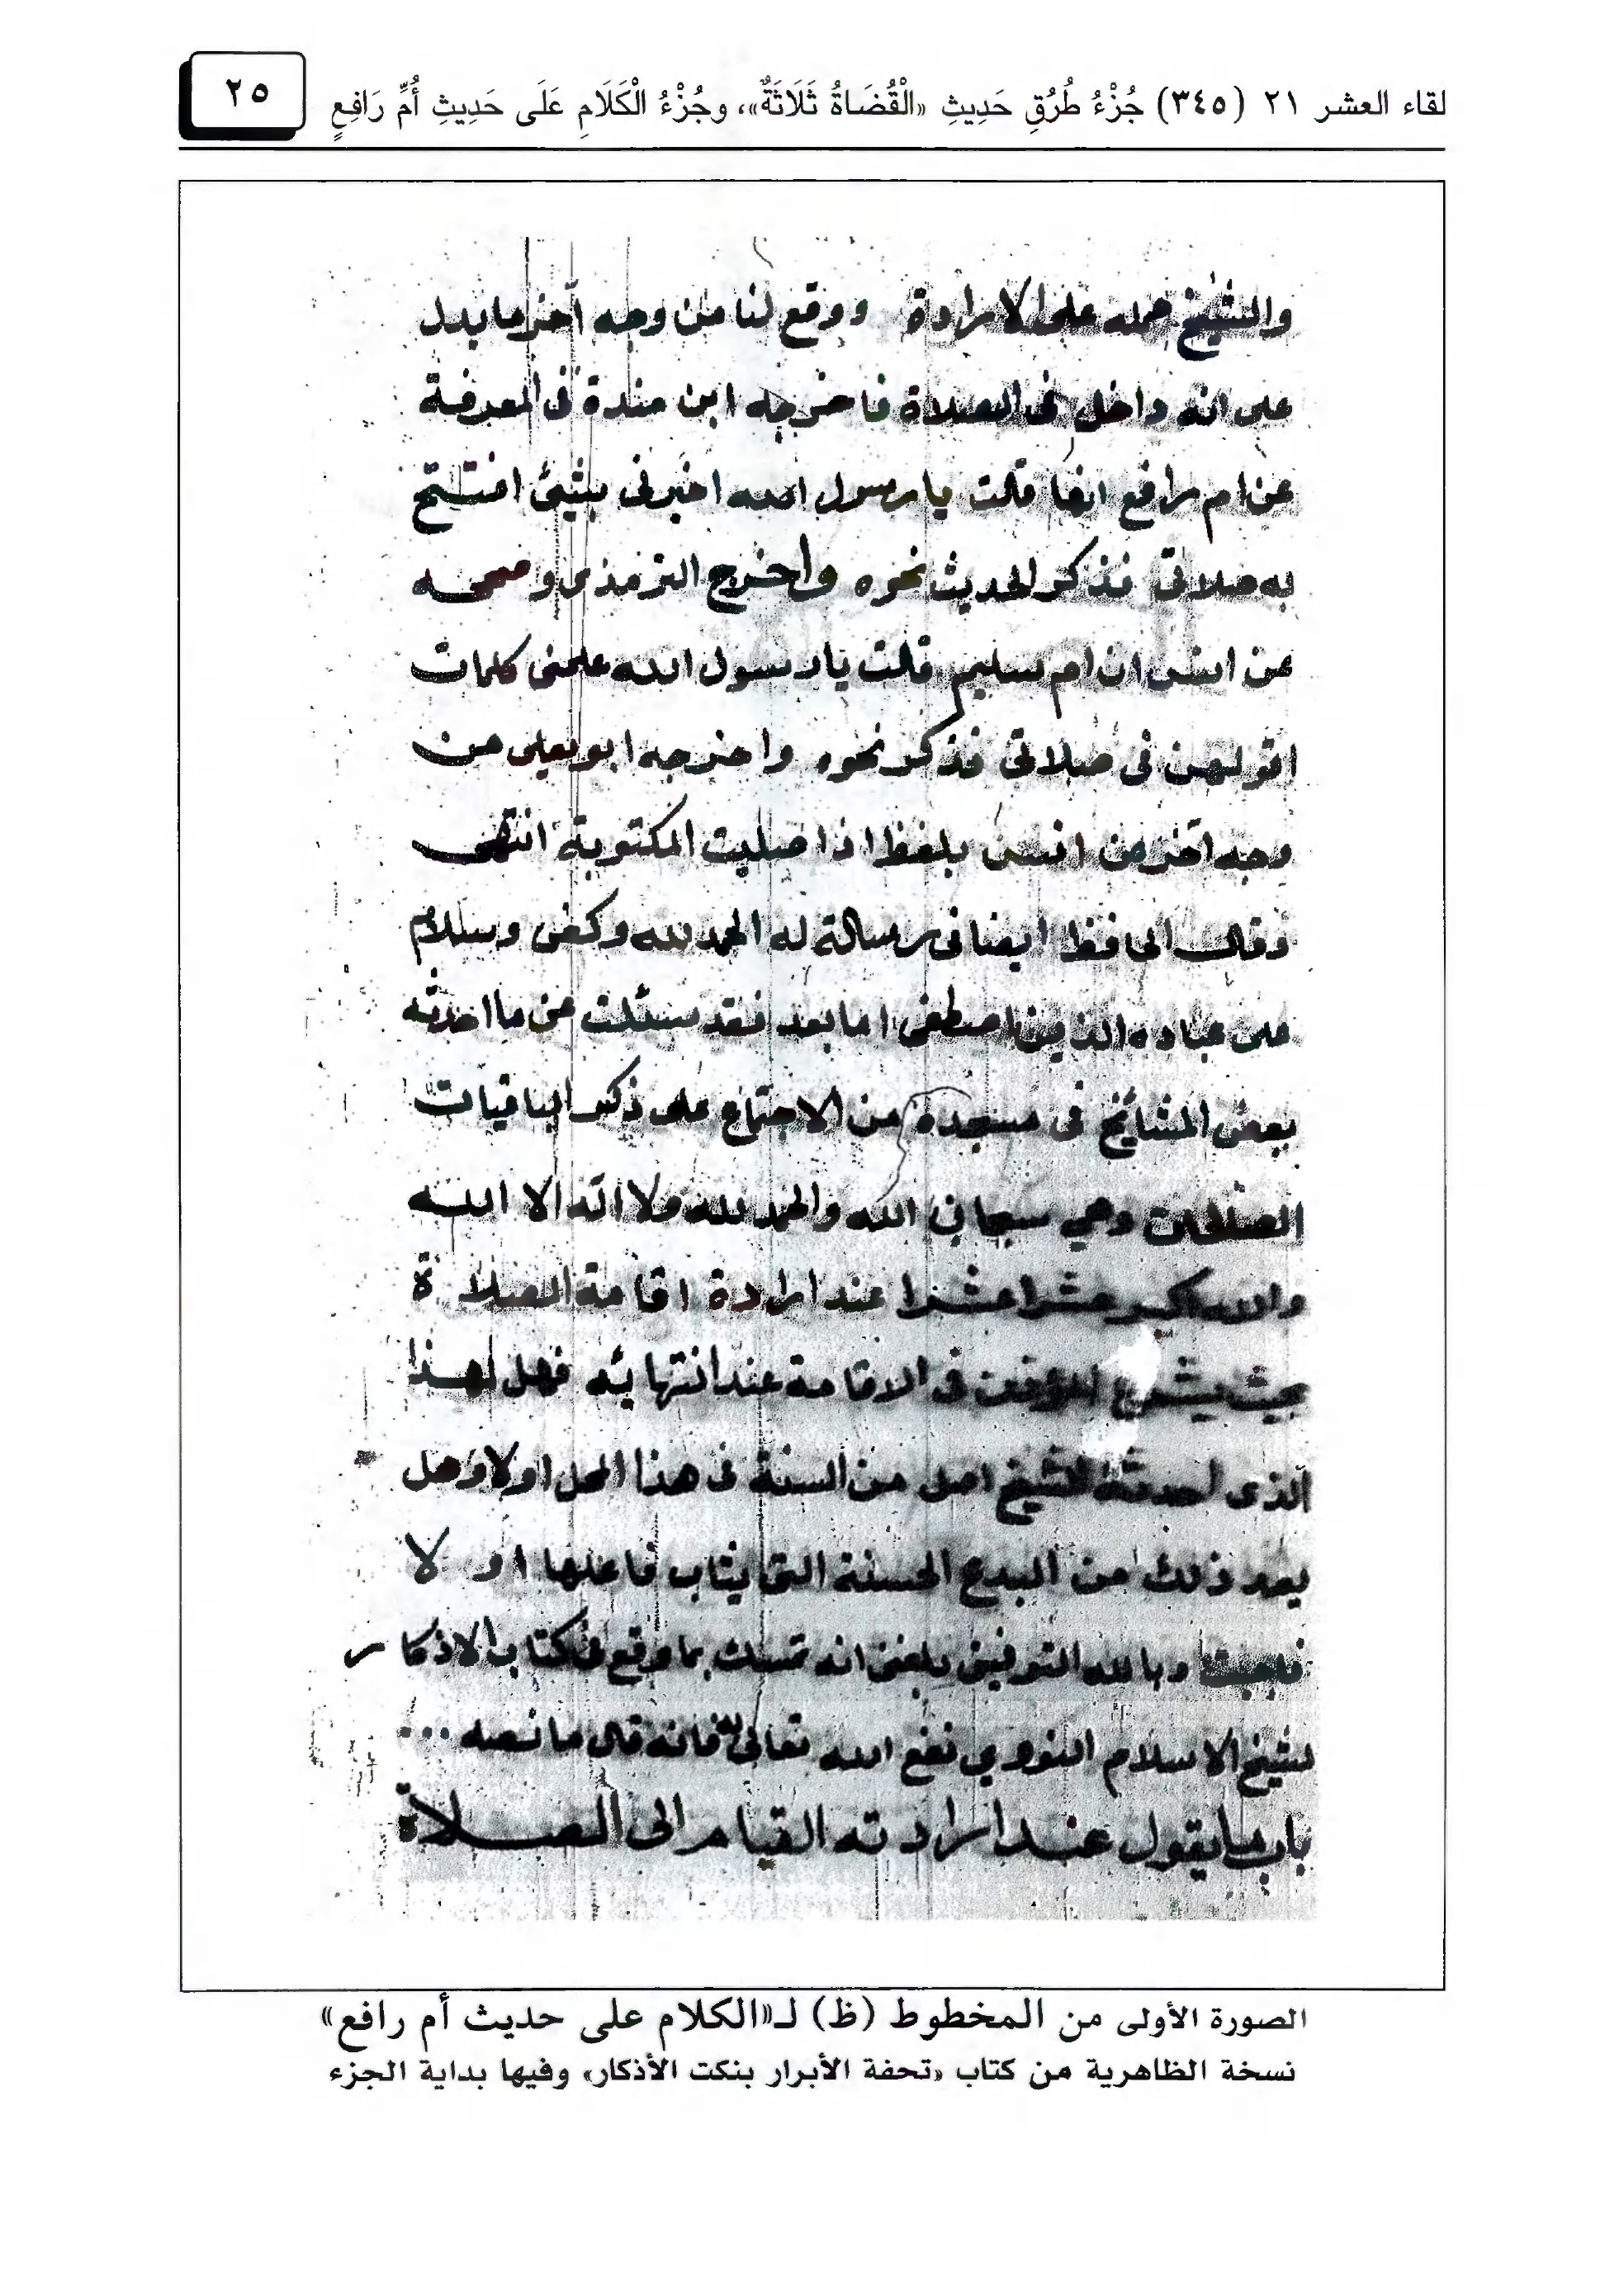 لقاء العشر ٢١ (٣٤٥) جُزْءُ طُرُقِ حَدِيثِ «الْقُضَاةُ ثَلَاثَةٌ»، وجُزْءُ الْكَلَامِ عَلَى حَدِيثِ أُمِّ رَافِعٍ
٢٥
والشيخ حمله على الارادة ووقع لنا من وجه آخر ما يدل
على انه داخل في الصلاة فاخرجه ابن مندة في المعرفة
عن ام رافع انها قالت يا رسول الله اخبرني بشئ افتتح
به صلاتي فذكر الحديث نحوه واخرج الترمذي وصححه
عن انس ان ام سليم قالت يا رسول الله علمني كلمات
اقولهن في صلاتي فذكر نحوه واخرجه ابو يعلى من
وجه آخر عن انس بلفظ اذا صليت المكتوبة انتهى
وقال الحافظ ايضا في رسالة له الحمد لله وكفى وسلام
على عباده الذين اصطفى اما بعد فقد سئلت عن ما احدثه
بعض المشائخ في مسجده من الاجتماع على ذكر الباقيات
الصالحات وهي سبحان الله والحمد لله ولا اله الا الله
والله اكبر عشرا عشرا عند ارادة اقامة الصلاة
بحيث يشرع المؤذن في الاقامة عند انتهائه فهل لهذا
الذي احدثه الشيخ اصل من السنة في هذا المحل اولا وهل
يعد ذلك من البدع الحسنة التي يثاب فاعلها او لا
فاجبت وبالله التوفيق بلغني انه تمسك بما وقع في كتاب الاذكار
لشيخ الاسلام النووي نفع الله تعالى به فانه قال ما نصه ...
باب ما يقول عند ارادته القيام الى الصلاة
الصورة الأولى من المخطوط (ظ) لـ«الكلام على حديث أم رافع»
نسخة الظاهرية من كتاب «تحفة الأبرار بنكت الأذكار» وفيها بداية الجزء